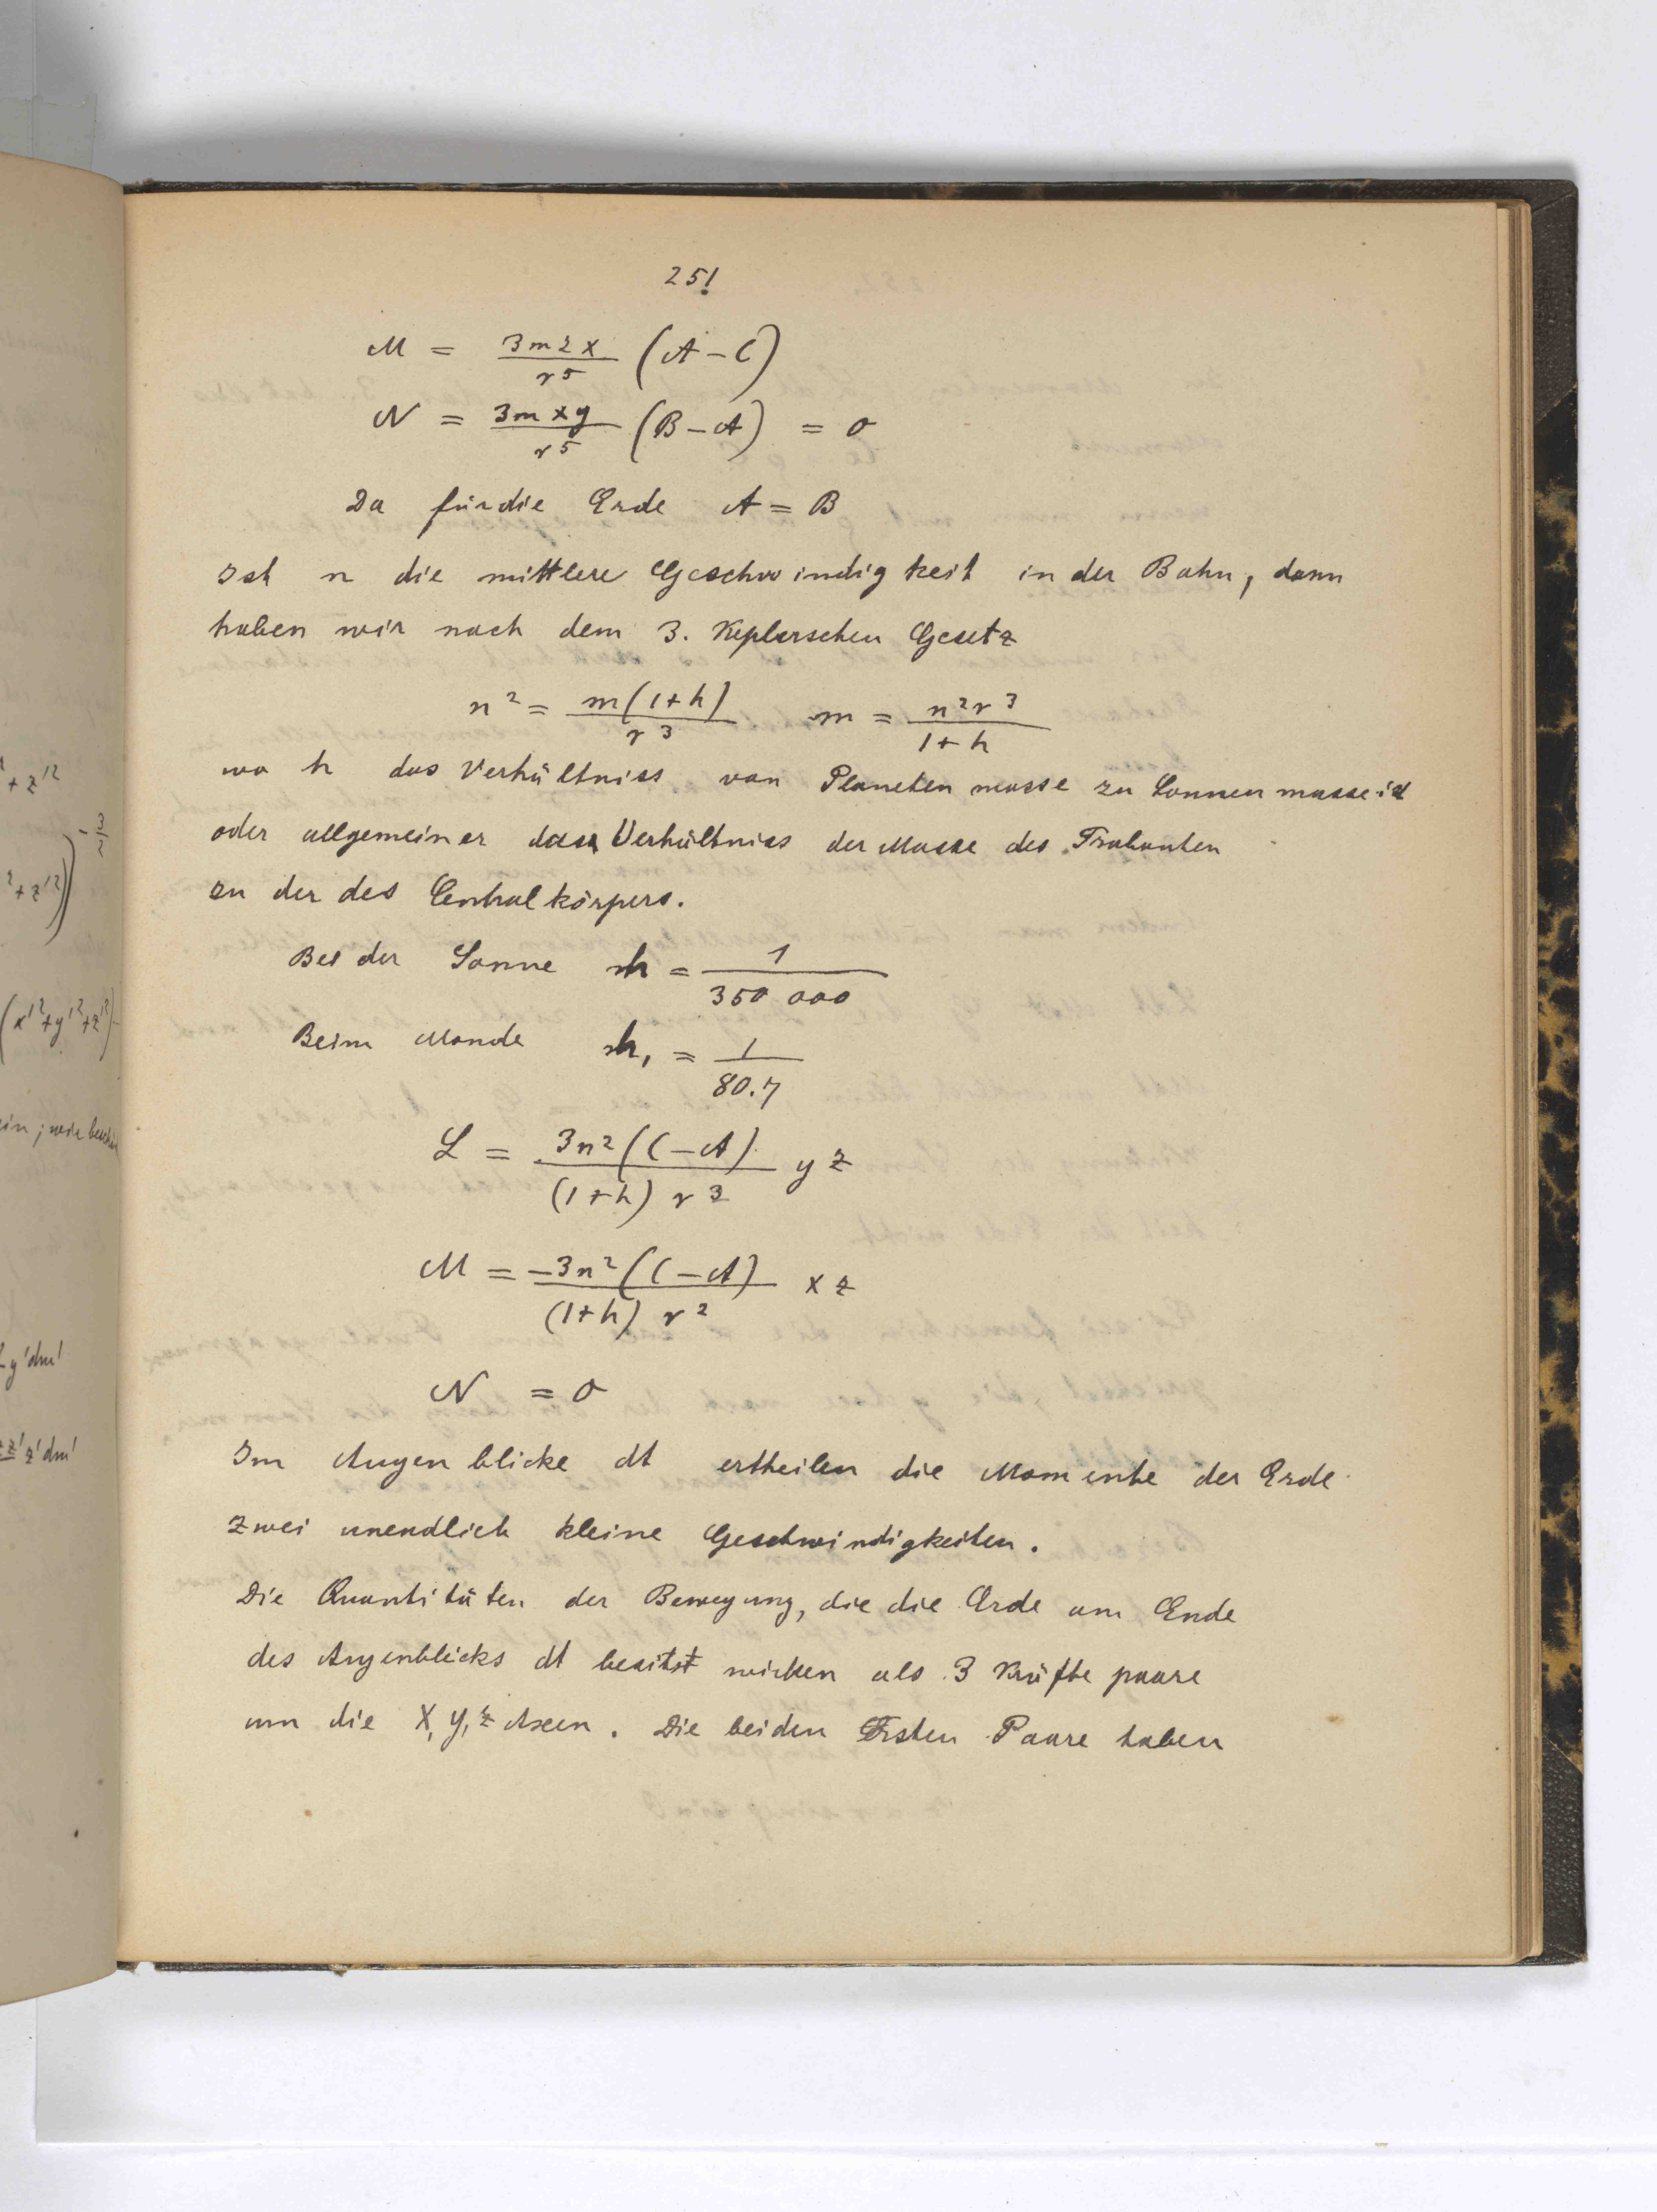 251
M = 3mzx/r⁵ (A-C)
N = 3mxy/r⁵ (B-A) = 0
Da für die Erde A = B
Ist n die mittlere Geschwindigkeit in der Bahn, dann
haben wir nach dem 3. Keplerschen Gesetz
n² = m(1+h)/r³ m = n²r³/1+h
wo h das Verhältniss von Planetenmasse zu Sonnenmasse ist
oder allgemeiner das Verhältniss der Masse des Trabanten
zu der des Centralkörpers.
Bei der Sonne h = 1/350 000
Beim Monde h, = 1/80.7
L = 3n²(C-A)/(1+h) r³ yz
M = -3n²(C-A)/(1+h) r² xz
N = 0
Im Augenblicke dt ertheilen die Momente der Erde
zwei unendlich kleine Geschwindigkeiten.
Die Quantitäten der Bewegung, die die Erde am Ende
des Augenblicks dt besitzt wirken als 3 Kräftepaare
um die X, Y, Z Axen. Die beiden Ersten Paare haben
+ z'²
²+z'²)) -3/2
(x'²+y'²+z'²)
y'dm'
zz' z'dm'